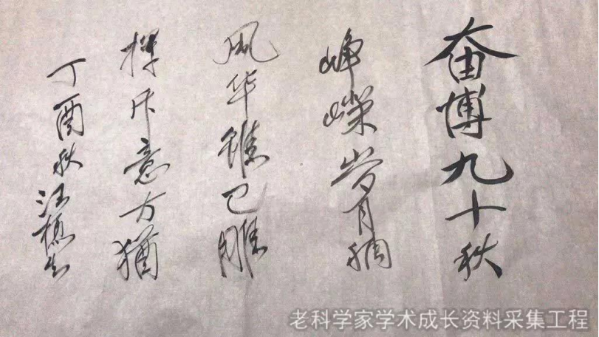 奋博九十秋
峥嵘岁月稠
风华雖已雕
揮斥意方猶
丁酉秋汪槱生
老科学家学术成长资料采集工程